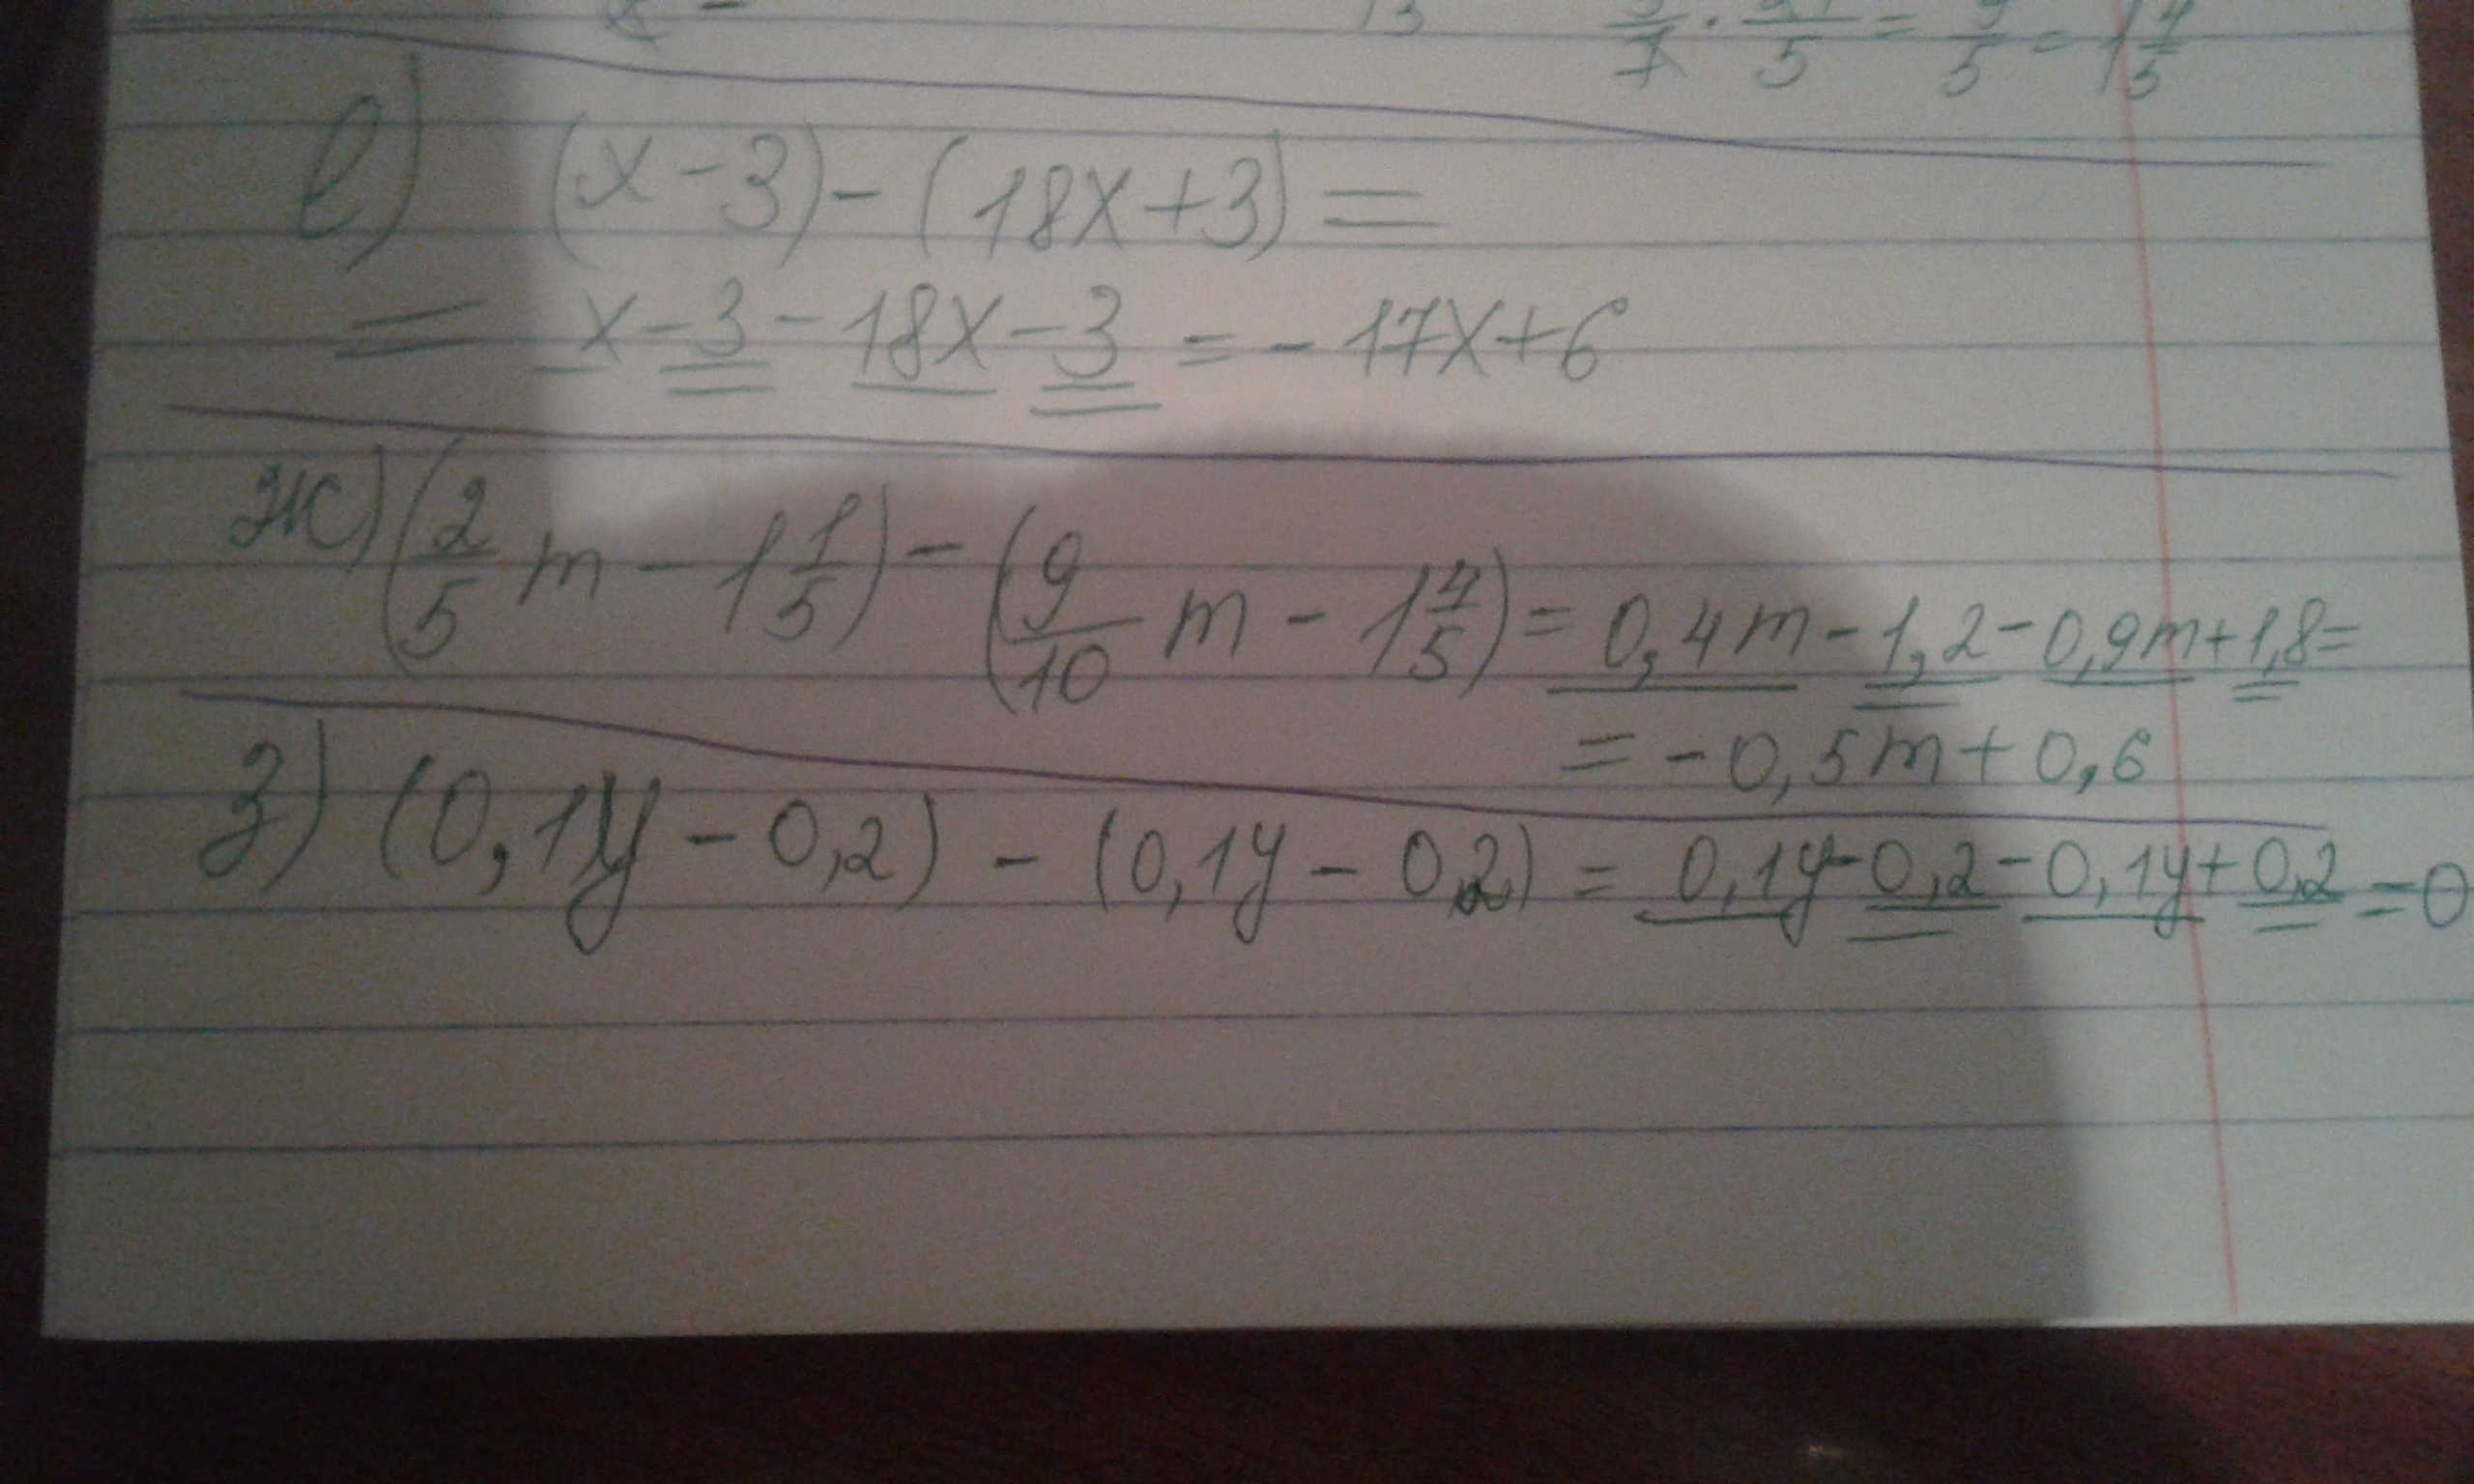 13 5/7 · 21/5 = 9/5 = 1 4/5
е) (x-3)-(18x+3)=
= x-3-18x-3=-17x+6
ж) (2/5 m - 1 1/5) - (9/10 m - 1 4/5) = 0,4m-1,2-0,9m+1,8=
=-0,5m+0,6
з) (0,1y-0,2) - (0,1y-0,2) = 0,1y-0,2-0,1y+0,2=0